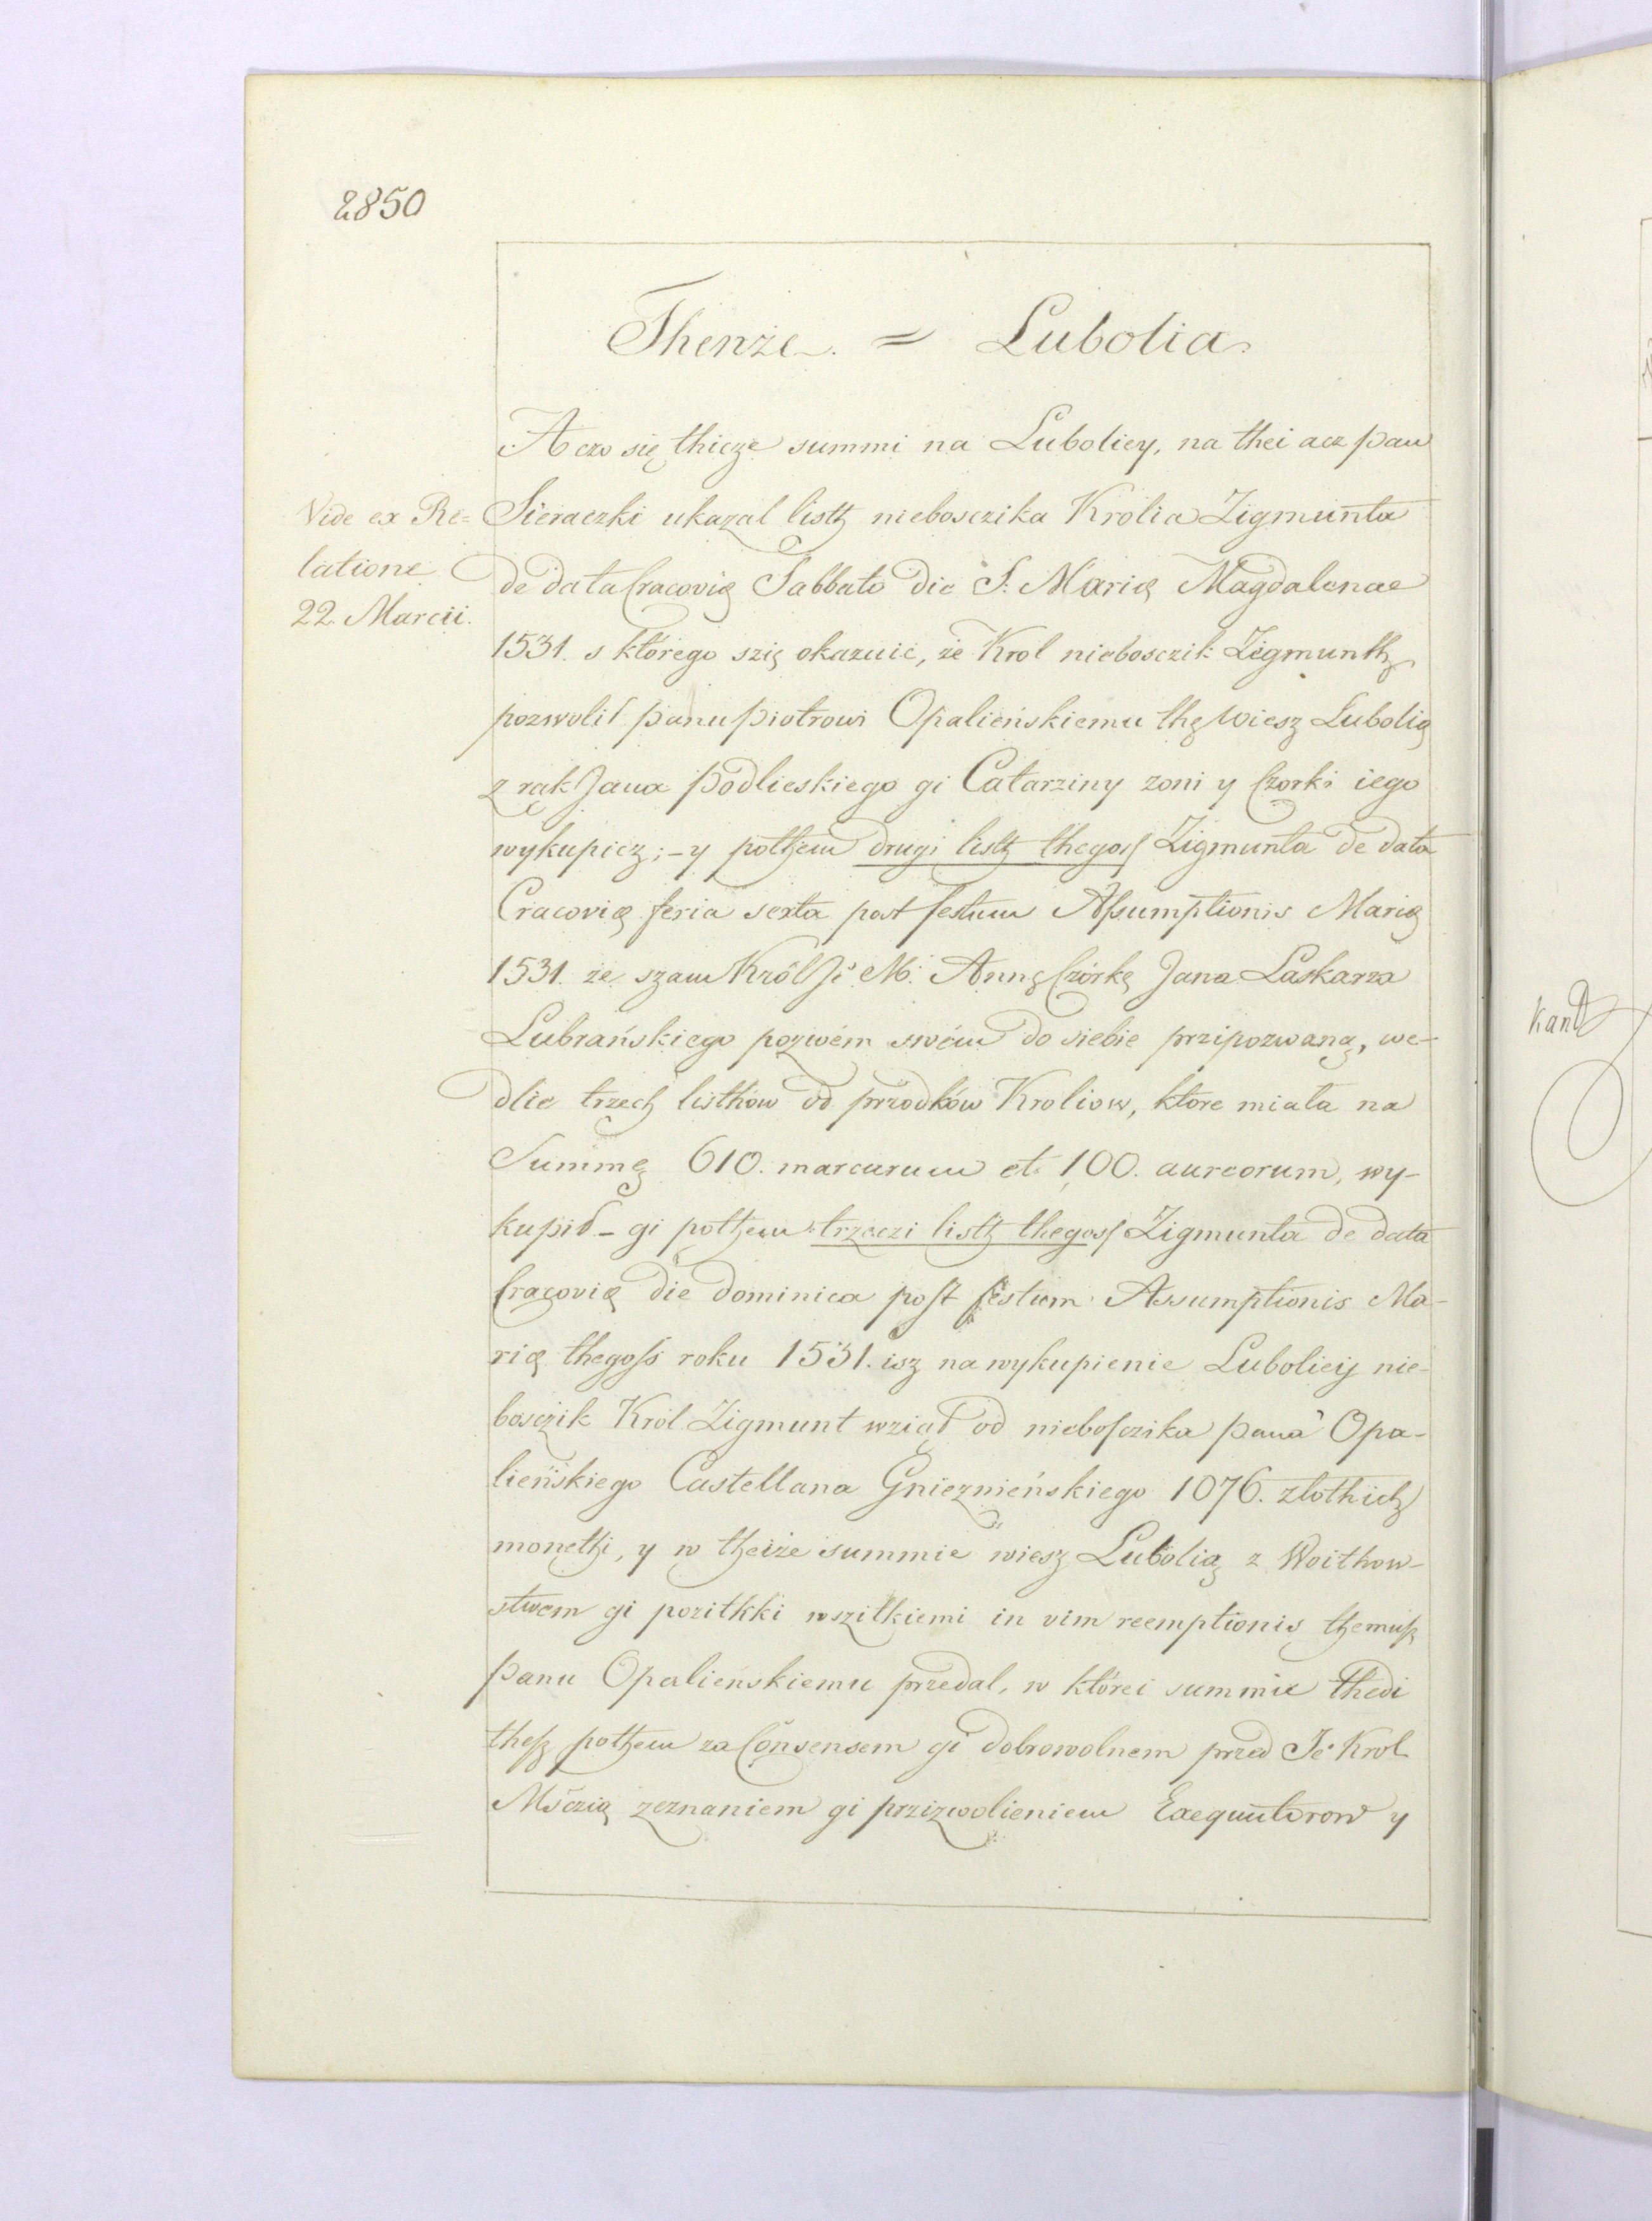 2850
Thenże = Lubolia
A czo się thicze summi na Luboliey, na thei acz pan
Vide ex Re=
latione
22. Marcii.
Sieraczki ukazal listh nieboszcika Krolia Zigmunta
de data Cracovię Sabbato die S. Marię Magdalenae
1531. s którego szię okazuie, że Krol niebosczik Zigmunth
pozwolił panu Piotrowi Opalieńskiemu thę wiesz Lubolią
z rąk Jana Podlieskiego gi Catarziny zoni y Czorki iego
wykupicz; – y pothem drugi listh thegoſſ Zigmunta de data
Cracovię feria sexta post festum Aſsumptionis Marię
1531. że szam Król Jé M: Annę Czórkę Jana Laskarza
Lubrańskiego pozwém swém do siebie przipozwaną, we-
dlie trzech listhów od przodków Kroliow, ktore miała na
Summę 610. marcarum et 100. aureorum, wy-
kupił – gi pothem trzeczi listh thegosſ Zigmunta de data
Cracovię die dominica poſt festum Assumptionis Ma-
rię thegoſs roku 1531. isz na wykupienie Luboliey nie-
bosczik Król Zigmunt wziął od nieboſczika pana Opa-
lieńskiego Castellana Gnieznieńskiego 1076. złothich
monethi, y w theiże summie wiesz Lubolią z Woithow-
stwem gi pozitkki wszitkiemi in vim reemptionis themuſz
panu Opalieńskiemu przedal, w którei summie thedi
theſz pothem za Consensem gi dobrowolnem przed Jé Krol
Mśczią zeznaniem gi przizwolieniem Exequutorow y
Kant